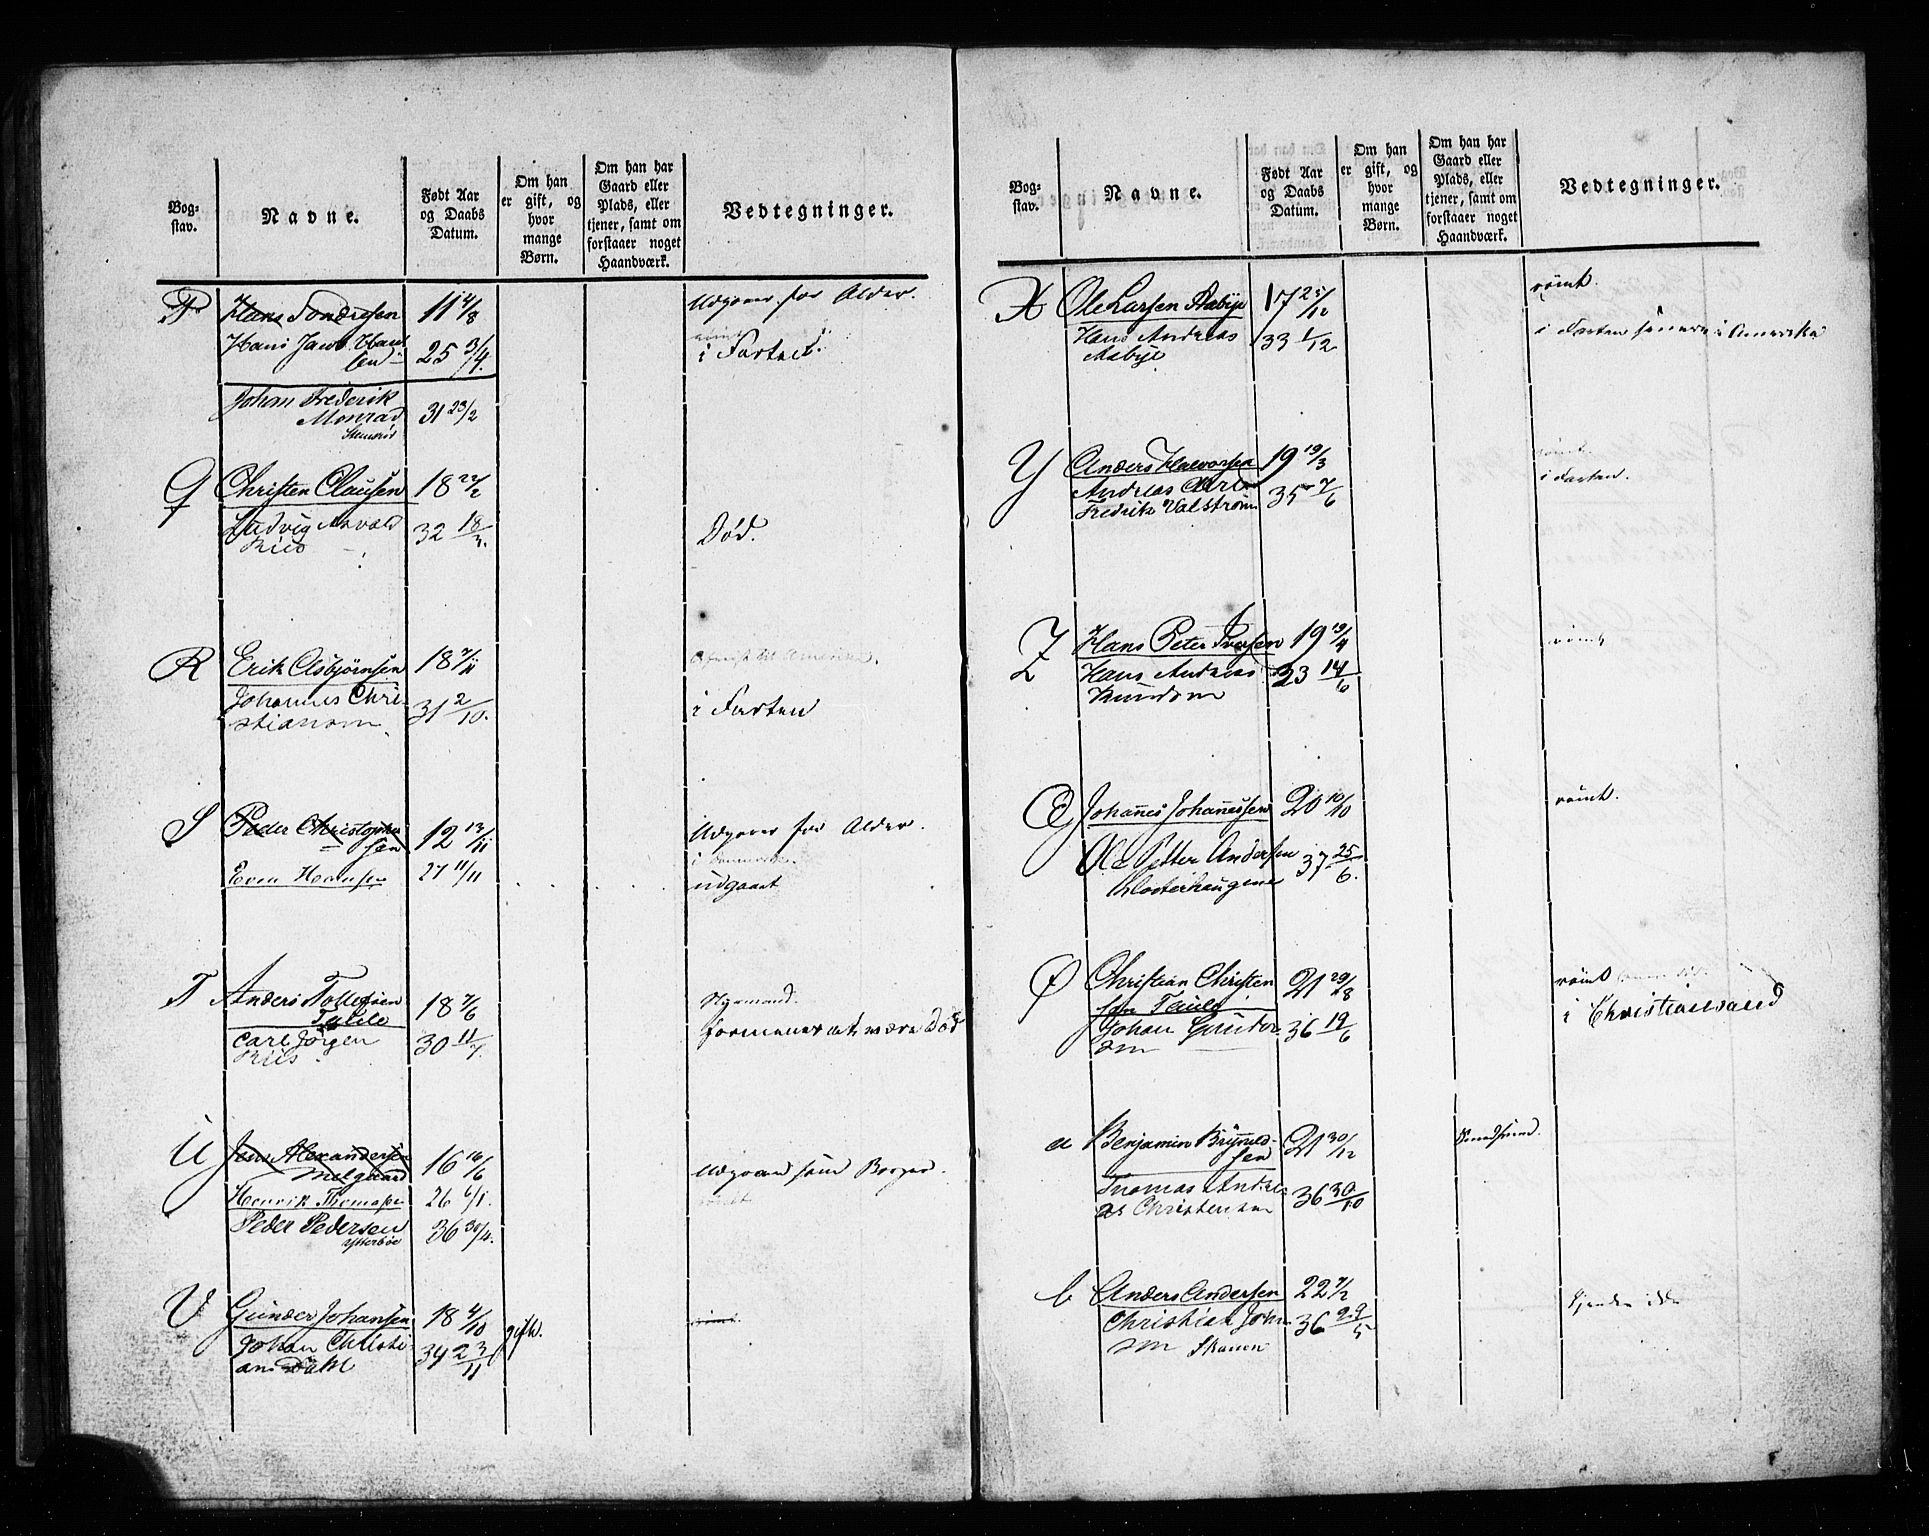 Bog-
stav.
Navne.
Født Aar
og Daabs
Datum.
Om han
er gift, og
hvor
mange
Børn.
Om han har
Gaard eller
Plads, eller
tjener, samt om
forstaaer noget
Haandværk.
Vedtegninger.
P Hans Tondresen 11 4/8 Udgaaer for Alder.
Hans Jacob Han
sen 25 3/4. i Farten.
Johan Frederik
Monrad 31 23/2
Stensrød
Q Christen Clausen 18 22/2
Ludvig Arvold
Riis 32 18/3. Død.
R Erik Asbjørnsen 18 7/11 Afreist til Amerika.
Johannes Chri-
stiansen 31 2/10. i Farten
S Peder Christopher
sen 12 13/11 Udgaaer for Alder.
Even Hansen 27 11/11 udgaaet
T Anders Tollefsen 18 7/6 Styrmand.
Carl Jørgen
Riis 30 11/7. formenes at være Død
U Jens Alexandersen
Melgaard 16 16/6 Udgaar som Borger.
Henrik Thomasen 26 6/1. rømt
Peder Pedersen
Ytterbøe 36 30/4.
V Gunder Johansen 18 4/10 rømt.
Johan Christi
an Dahl 34 23/11 gift.
Bog-
stav.
Navne.
Født Aar
og Daabs
Datum.
Om han
er gift, og
hvor
mange
Børn.
Om han har
Gaard eller
Plads, eller
tjener, samt om
forstaaer noget
Haandværk.
Vedtegninger.
X Ole Larsen Aabye 17 25/12 rømt.
Hans Andreas
Aabye 33 1/12 i Farten senere i Amerika
Y Anders Halvorsen 19 19/3 rømt.
Andreas Carl
Fredrik Valstrøm 35 7/6 i Farten.
Z Hans Peter Iversen 19 19/4 rømt
Hans Andreas
Knudsen 23 14/6
Æ Johannes Johannessen 20 10/10 rømt.
Ole Petter Andersen
Klosterhaugene 37 25/6.
Ø Christian Christen
sen Taule 21 29/8 rømt
Johan Gunder
sen 36 19/6 i Christiansand
a Benjamin Brynild-
sen 21 30/12
Thomas Andre
as Christensen 36 30/10
b Anders Andersen 22 7/2 kjendes ikke
Christian John
sen Skauen 36 29/5